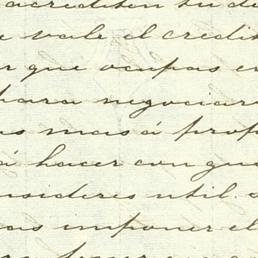 acrediten tu de
e vale el credit
r que ocupas en
para negociar
as mas á prop
á hacer con que
nsideres util. s
as imponer el